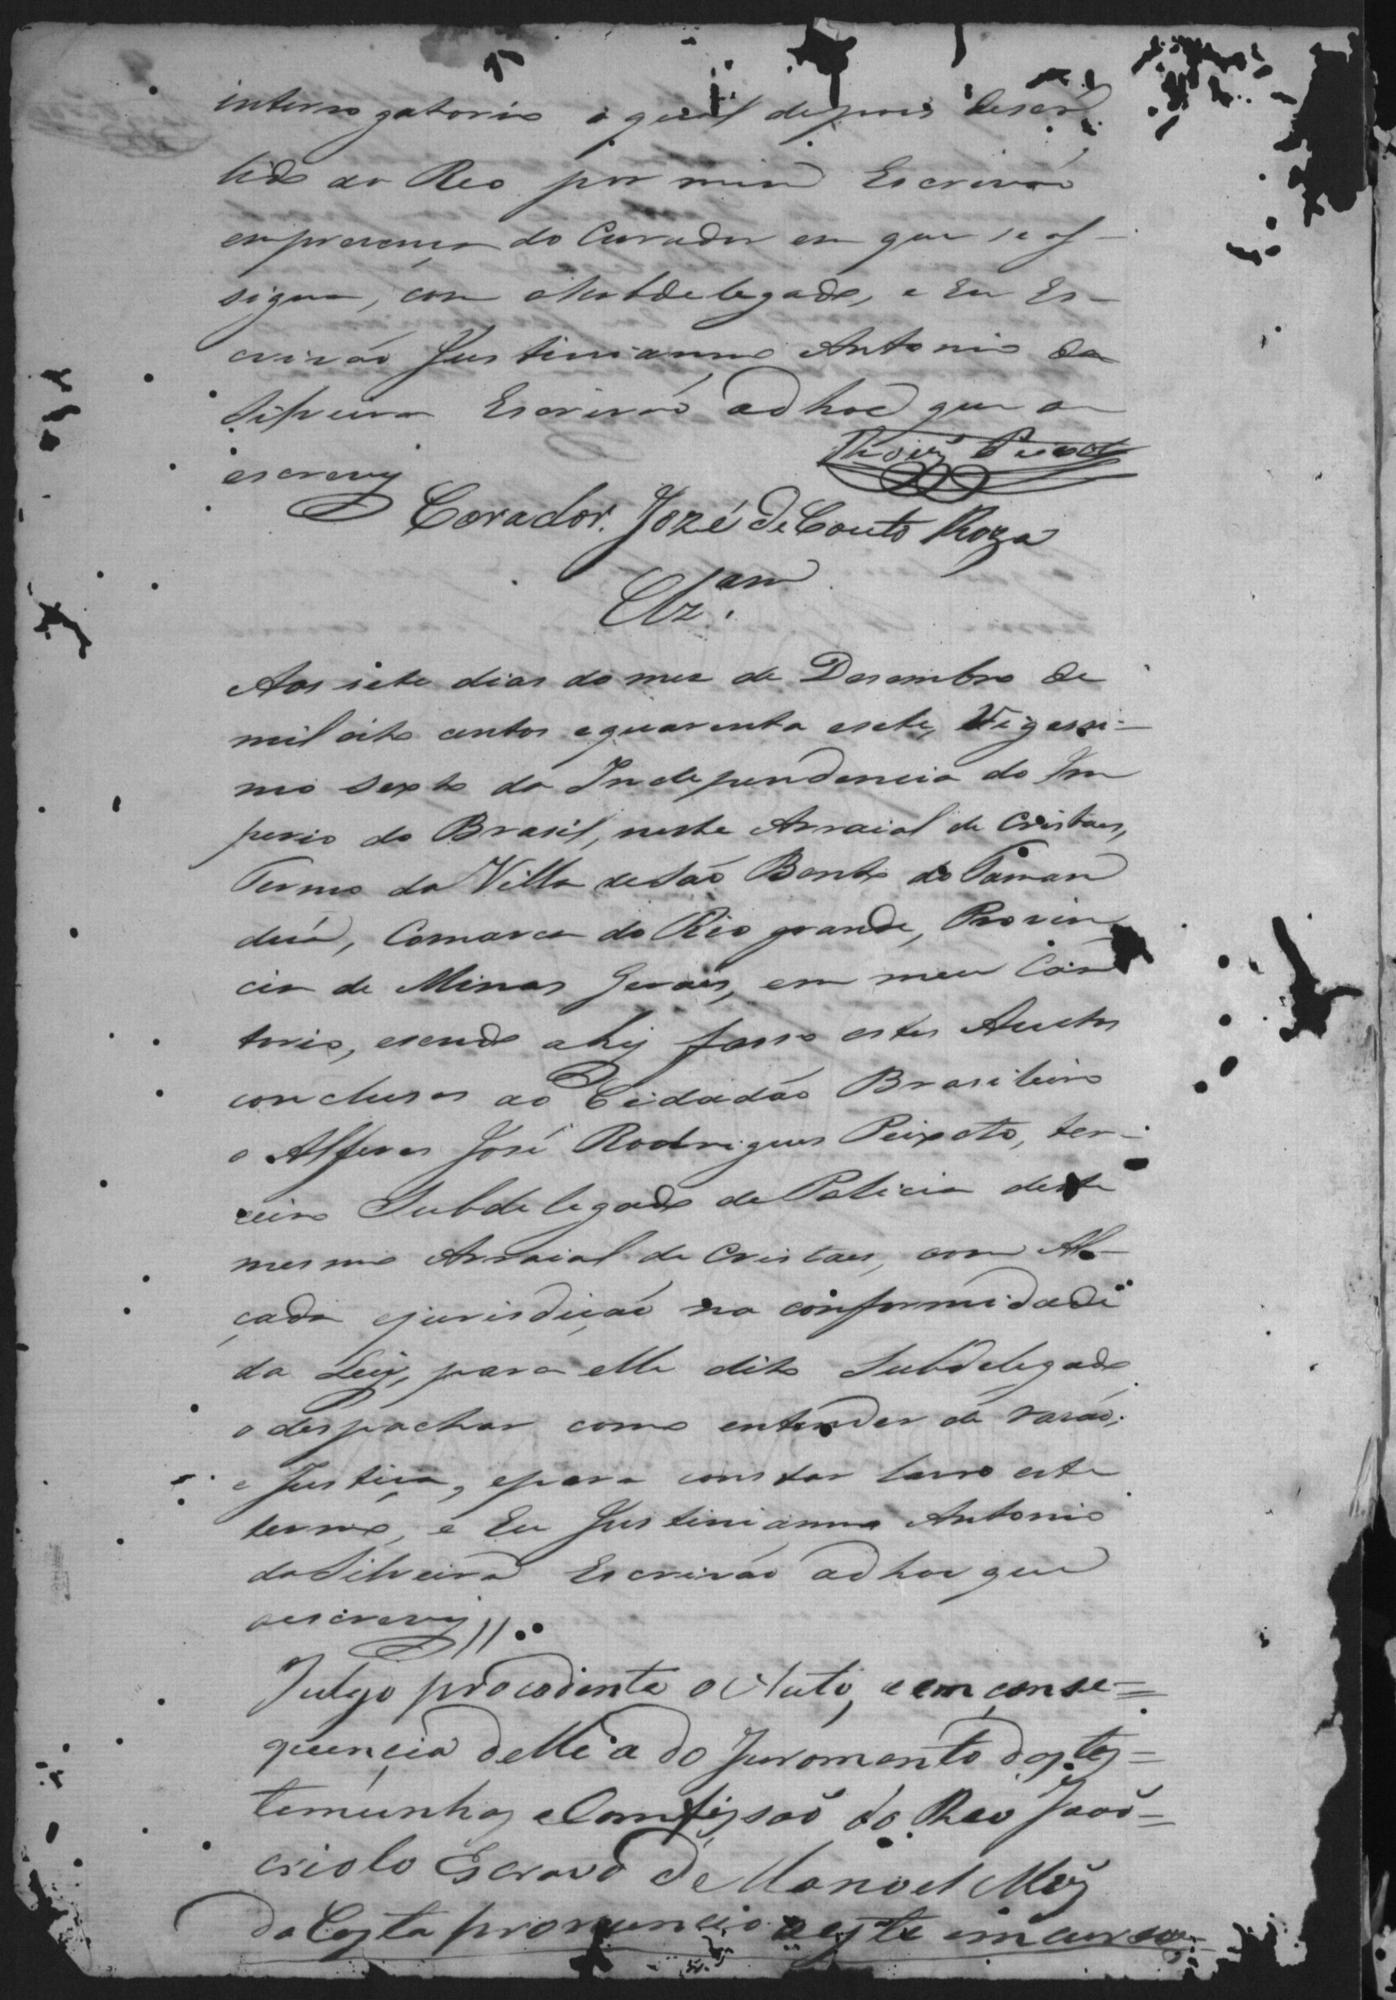 interrogatorio o qual depois de ser
lido ao Reo por mim Escrivão
em presença do Curador em que se as-
signa, com o Subdelegado, e Eu Es-
crivão Justinianno Antonio da
Silveira Escrivão ad hoc que o
escrevy
Peixoto
Corador. José de Couto Roza
Clz.am
Aos sete dias do mez de Desembro de
mil oito centos e quarenta e sete, Vigessi-
mo sexto da Independencia do Im
perio do Brasil, neste Arraial de Cristaes,
Termo da Villa de São Bento do Taman
duá, Comarca do Rio grande, Provin
cia de Minas Geraes, em meu Car
torio, e sendo ahy fasso estes Auctos
conclusos ao Cidadão Brasileiro
o Alferes José Rodrigues Peixoto, ter-
ceiro Subdelegado de Policia deste
mesmo Arraial de Cristaes, com Al-
çada e jurisdição na conformidade
da Ley, para elle dito Subdelegado
o despachar como entender de rasão,
e Justiça, e para constar lavro este
termo, e Eu Justinianno Antonio
da Silveira Escrivão ad hoc que
o escrevy //
Julgo procodente o Auto, e em conse=
quencia delle e a do Juromento das tes=
temunhas e Comfissaõ do Reo Joaõ=
criolo Escravo de Manoel Miz
da Costa pronuncio a este incurso